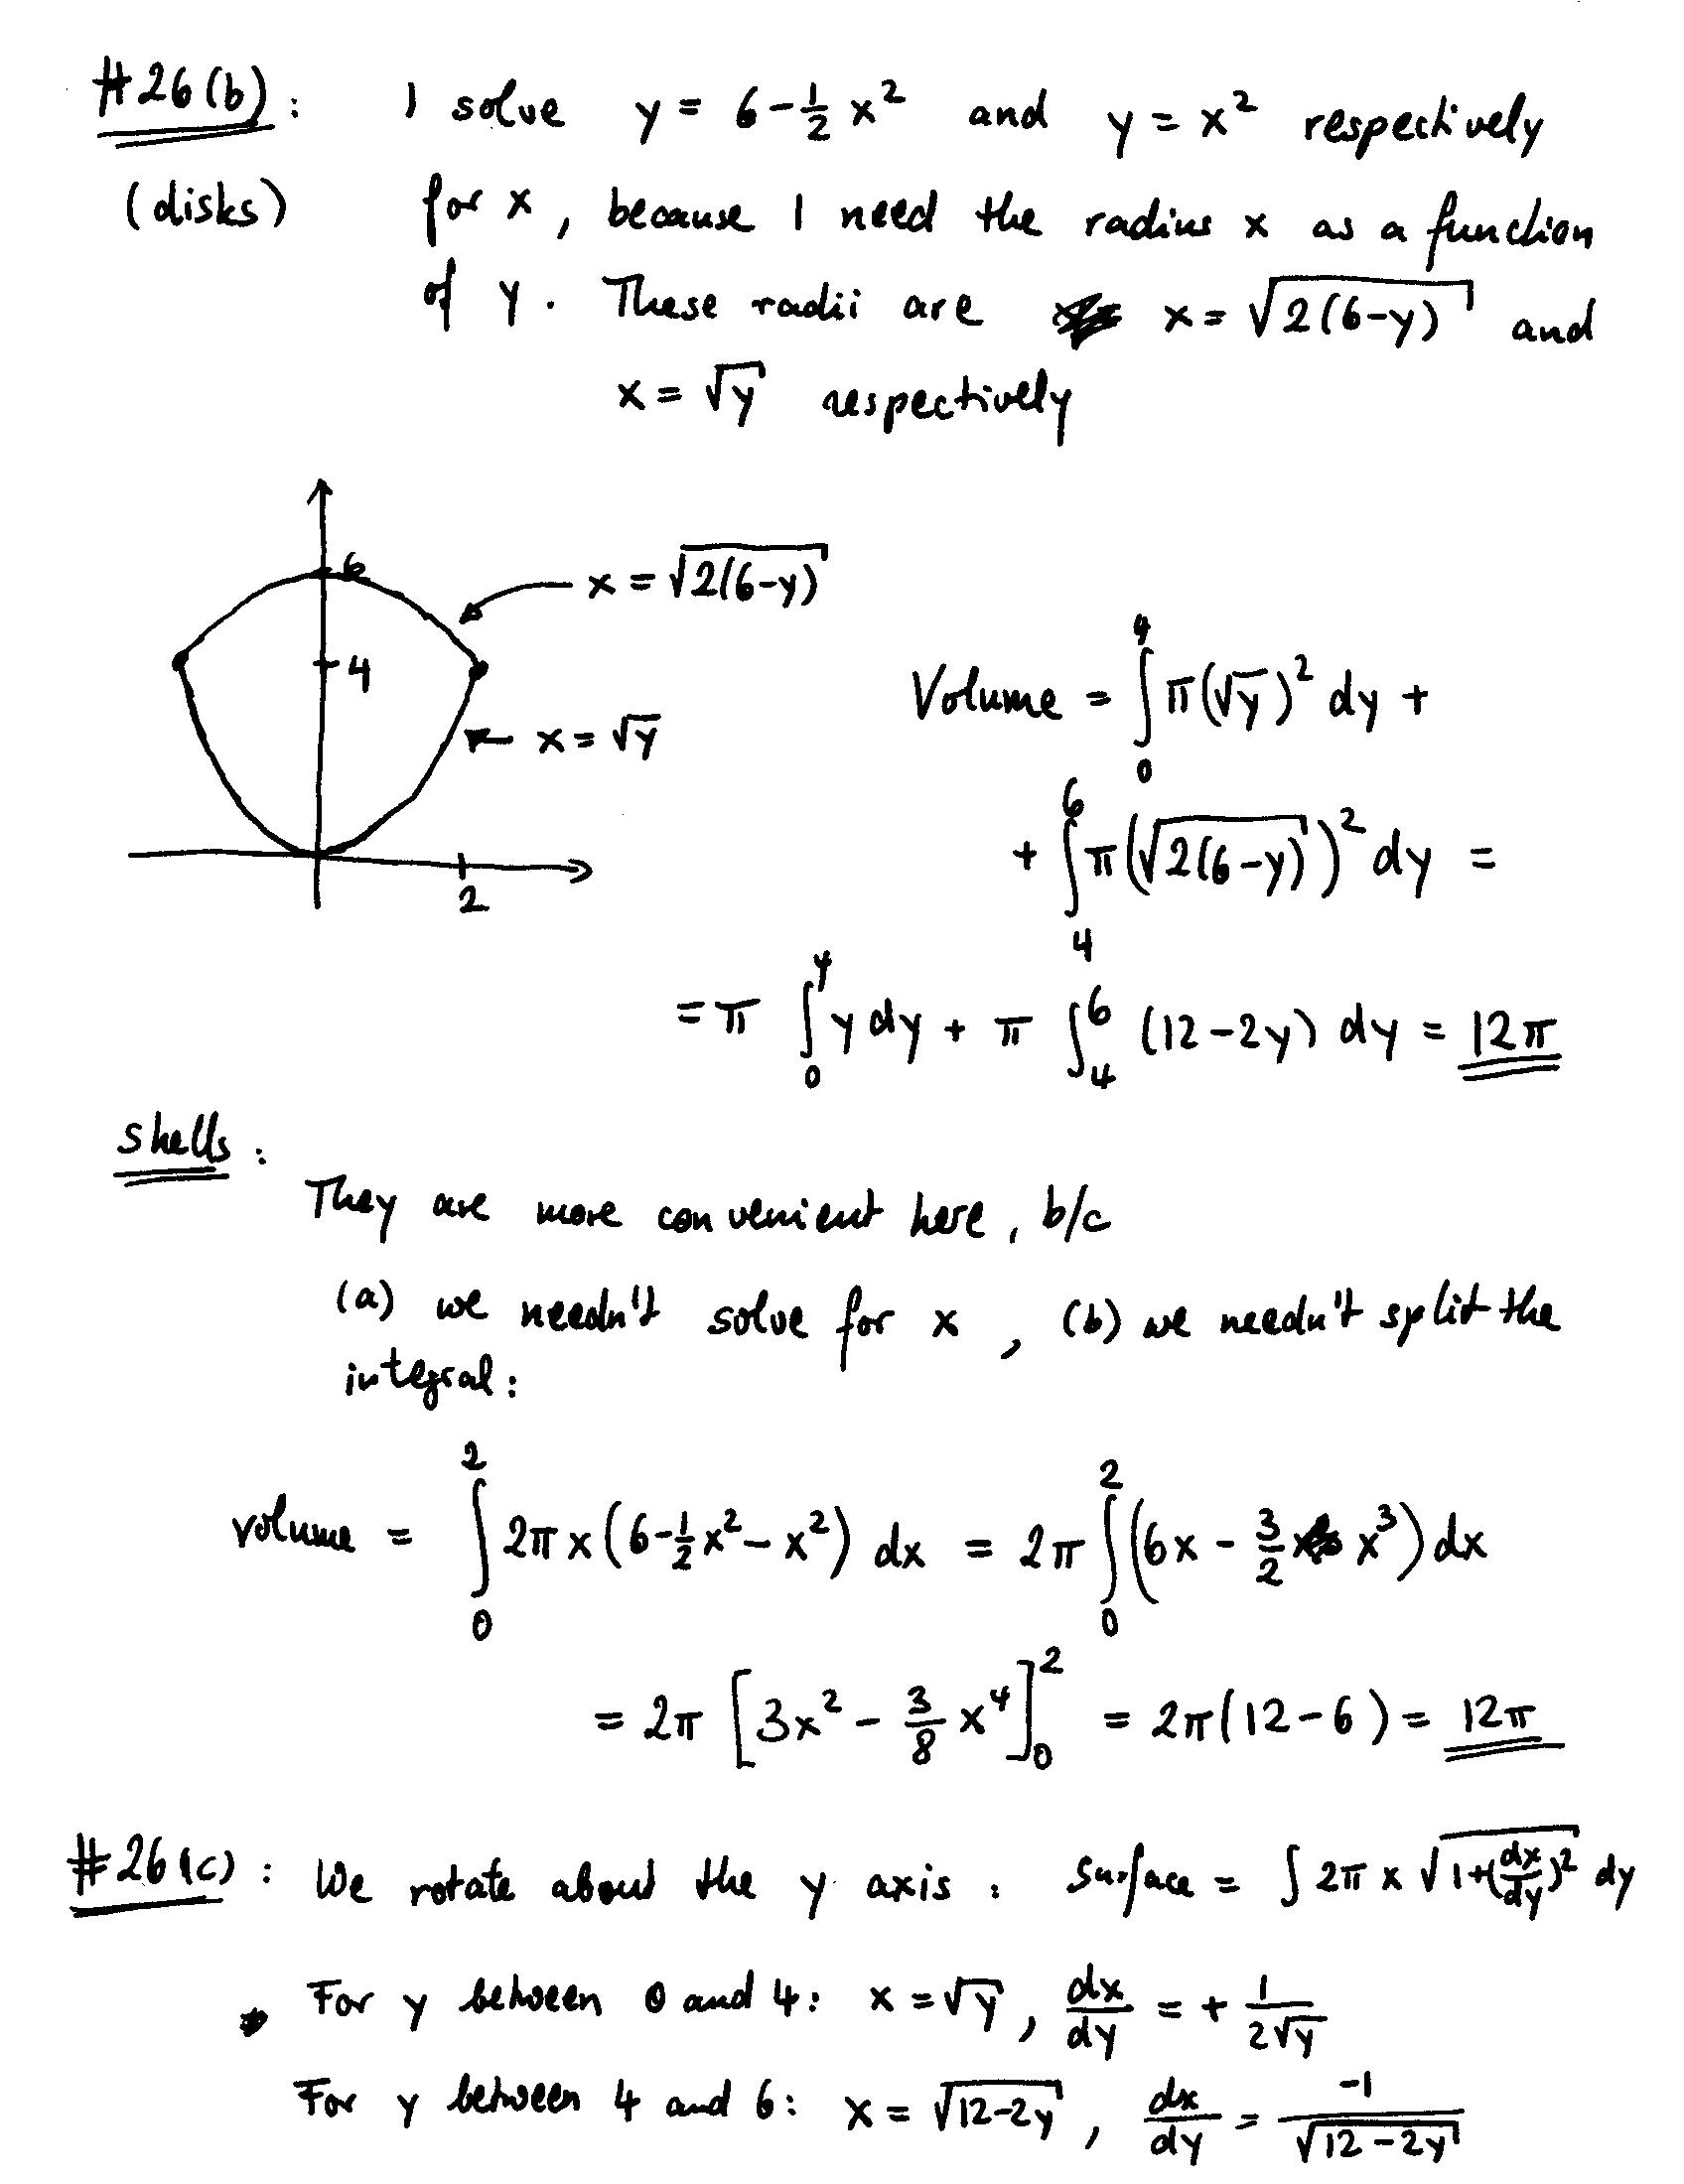 #26(b): I solve y = 6 - ½ x² and y = x² respectively
(disks) for x, because I need the radius x as a function
of y. These radii are x = √(2(6-y)) and
x = √y respectively
6
x = √(2(6-y))
4
x = √y
2
Volume = ∫₀⁴ π(√y)² dy +
+ ∫₄⁶ π(√(2(6-y)))² dy =
= π ∫₀⁴ y dy + π ∫₄⁶ (12-2y) dy = 12π
shells:
They are more convenient here, b/c
(a) we needn't solve for x, (b) we needn't split the
integral:
volume = ∫₀² 2πx(6-½x²-x²) dx = 2π ∫₀² (6x - 3/2 x³) dx
= 2π [3x² - 3/8 x⁴]₀² = 2π(12-6) = 12π
#26(c): We rotate about the y axis: Surface = ∫ 2π x √(1+(dx/dy)²) dy
For y between 0 and 4: x = √y, dx/dy = + 1/(2√y)
For y between 4 and 6: x = √(12-2y), dx/dy = -1/√(12-2y)